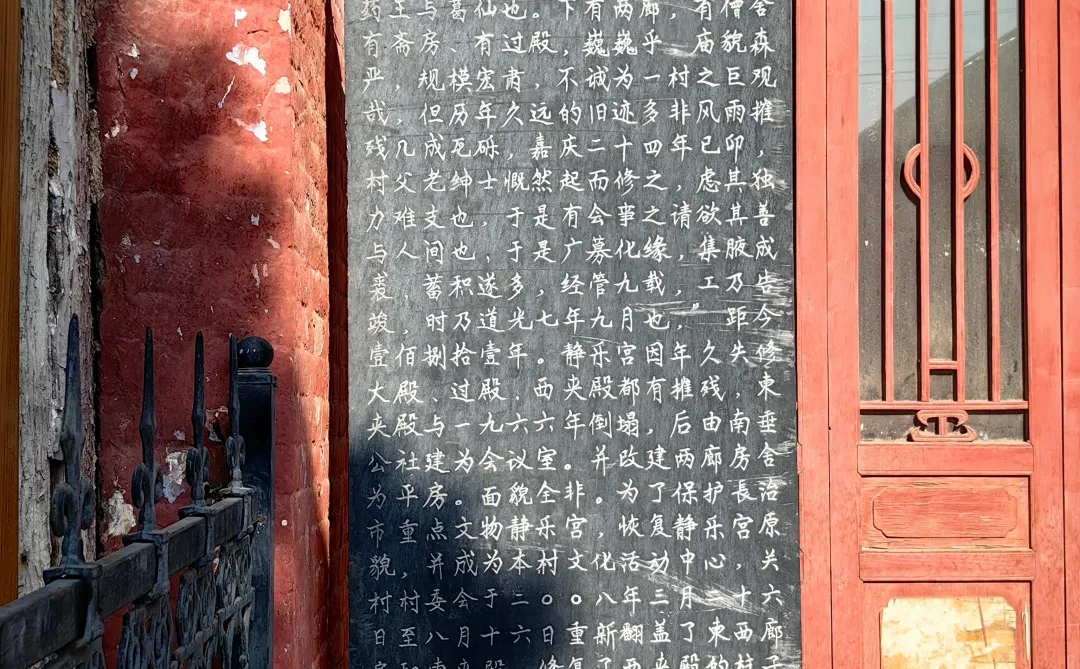 药王与葛仙也。下有两廊，有僧舍
有斋房、有过殿，巍巍乎，庙貌森
严，规模宏肃，不诚为一村之巨观
哉，但历年久远的旧迹多非风雨摧
残几成瓦砾，嘉庆二十四年已卯，
村父老绅士慨然起而修之，虑其独
力难支也，于是有会事之请欲其善
与人间也，于是广募化缘，集腋成
裘，蓄积遂多，经管九载，工乃告
竣，时乃道光七年九月也，”距今
壹佰捌拾壹年。静乐宫因年久失修
大殿、过殿．西夹殿都有摧残，東
夹殿与一九六六年倒塌，后由南垂
公社建为会议室。并改建两廊房舍
为平房。面貌全非。为了保护長治
市重点文物静乐宫，恢复静乐宫原
貌，并成为本村文化活动中心，关
村村委会于二〇〇八年三月二十六
日至八月十六日重新翻盖了東西廊
修复了西夹殿的柱子